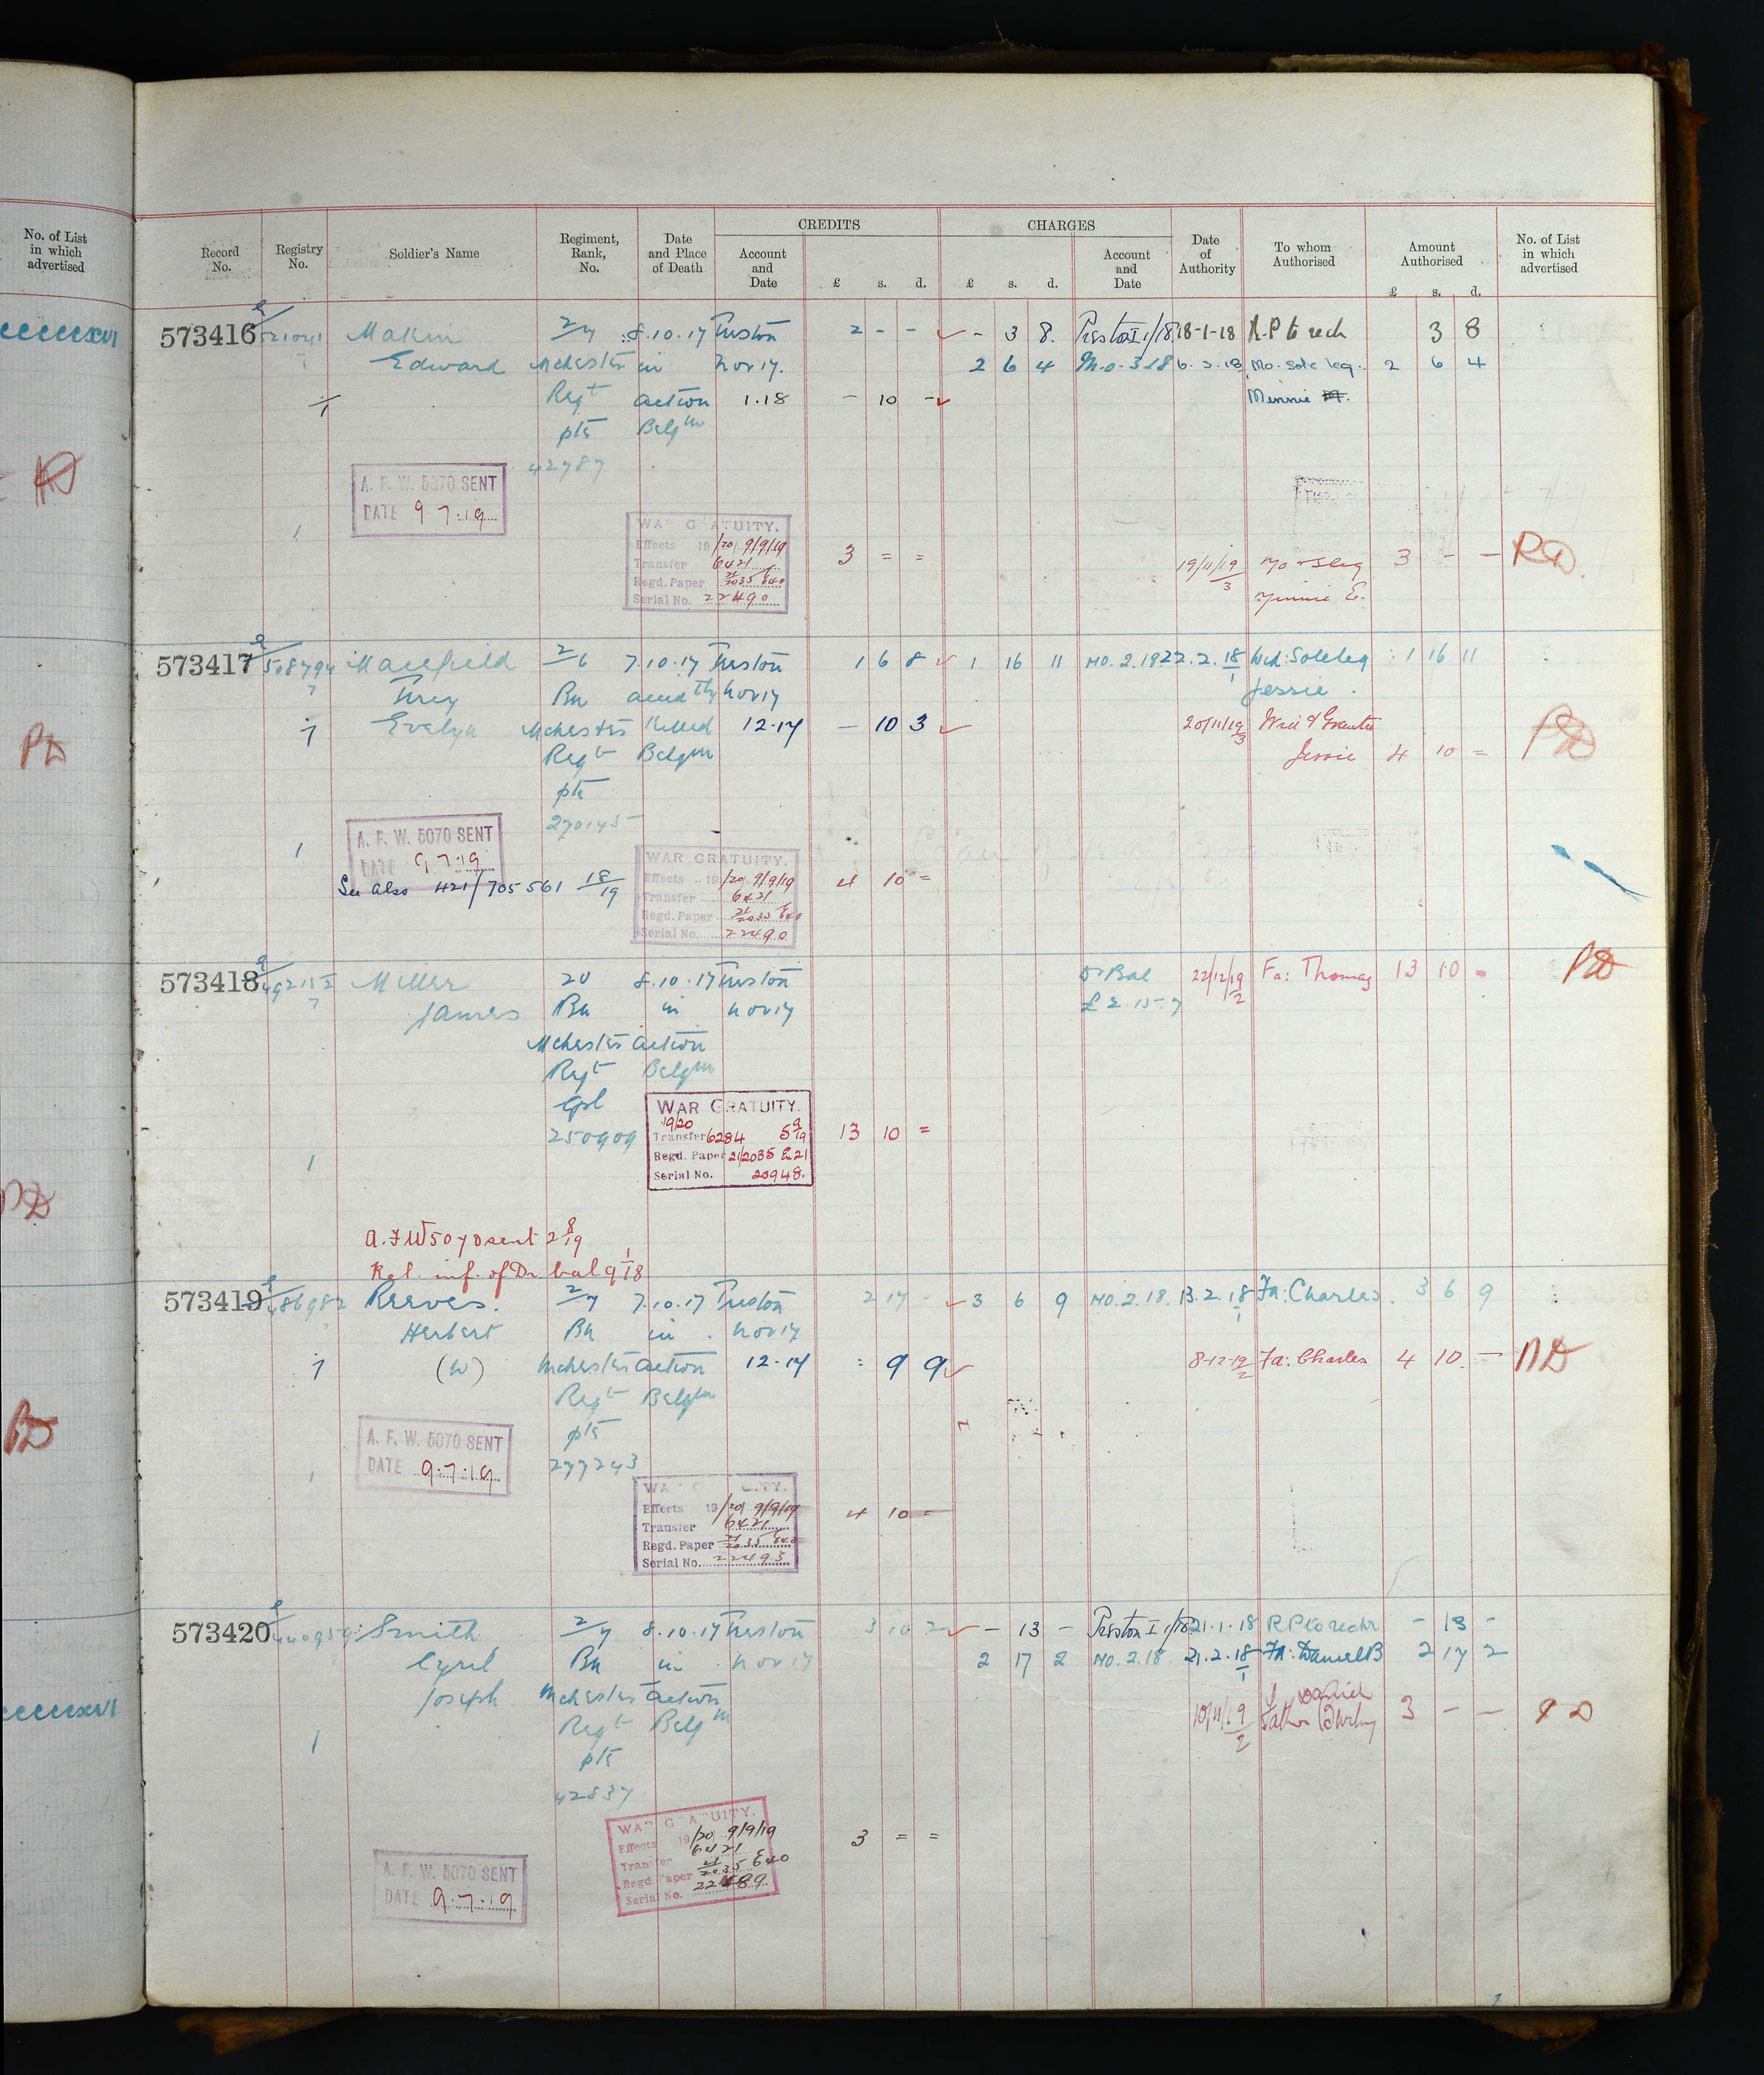 No. of List
in which
advertised
CREDITS CHARGES
Record No. Registry No. Soldier's Name Regiment, Rank, No. Date and Place of Death Account and Date £ s. d. £ s. d. Account and Date Date of Authority To whom Authorised Amount Authorised £ s. d. No. of List in which advertised
573416 Makin 2/7 8.10.17 Preston 2 - - - 3 8. Preston I 1/18 18-1-18 R.P to rech 3 8
Edward Mchester in Nov 17. 2 6 4 M.O. 3 18 6.3.18 Mo. Sole leg. 2 6 4
Regt action 1.18 - 10 - Minnie
pte Belgm
42787
A. F. W. 5070 SENT
DATE 9 7.19
WAR GRATUITY.
Effects 19/20 9/9/19 3 = =
Transfer 6421 19/11/19 Mo & S leg 3 - - PD
Regd. Paper 21/2035 E40 3 Minnie E.
Serial No. 22490
573417 508794 Mansfield 2/6 7.10.17 Preston 1 6 8 1 16 11 MO. 2.19 22.2.18 Wid: Sole leg 1 16 11
Percy Bn accid tly Nov 17 1 Jessie.
Evelyn Mchester killed 12.17 - 10 3 20/11/19 Wid & Grantee PD
Regt Belgm 3 Jessie 4 10 =
pte
270145
A. F. W. 5070 SENT
DATE 9.7.19
See also 421/705561 18/19
WAR GRATUITY.
Effects 19/20 9/9/19 4 10 =
Transfer 6421
Regd. Paper 21/2035 E40
Serial No. 22490
573418 492152 Miller 20 8.10.17 Preston Dr Bal 22/12/19 Fa: Thomas 13 10 = PD
James Bn in Nov 17 £2.15.7 2
Mchester action
Regt Belgm
Cpl
250909
WAR GRATUITY.
19/20
Transfer 6284 5 9/19 13 10 =
Regd. Paper 21/2035 E21
Serial No. 20948.
A.F.W 5070 sent 2 8/19
Rel. inf. of Dr. bal 9 1/18
573419 486982 Reeves. 2/7 7.10.17 Preston 2 17 - 3 6 9 MO. 2.18. 13.2.18 Fa: Charles. 3 6 9
Herbert Bn in Nov 17 1
(W) Mchester action 12.17 : 9 9 8-12-19 Fa: Charles 4 10. - PD
Regt Belgm 2
pte
277243
A. F. W. 5070 SENT
DATE 9.7.19
Effects 19/20 9/9/19 4 10 =
Transfer 6421
Regd. Paper 21/2035 E40
Serial No. 22493
573420 440959 Smith 2/7 8.10.17 Preston 3 10 2 - 13 - Preston I 1/18 21.1.18 R P to rechr - 13 -
Cyril Bn in Nov 17 2 17 2 MO. 2.18. 21.2.18 Fa: Daniel B 2 17 2
Joseph Mchester action 1
Regt Belgm 10/11/19 Father Daniel 3 - - PD
pte 2
42837
WAR GRATUITY.
Effects 19/20 9/9/19 3 = =
Transfer 6421
Regd. Paper 21/2035 E40
Serial No. 22489
A. F. W. 5070 SENT
DATE 9.7.19